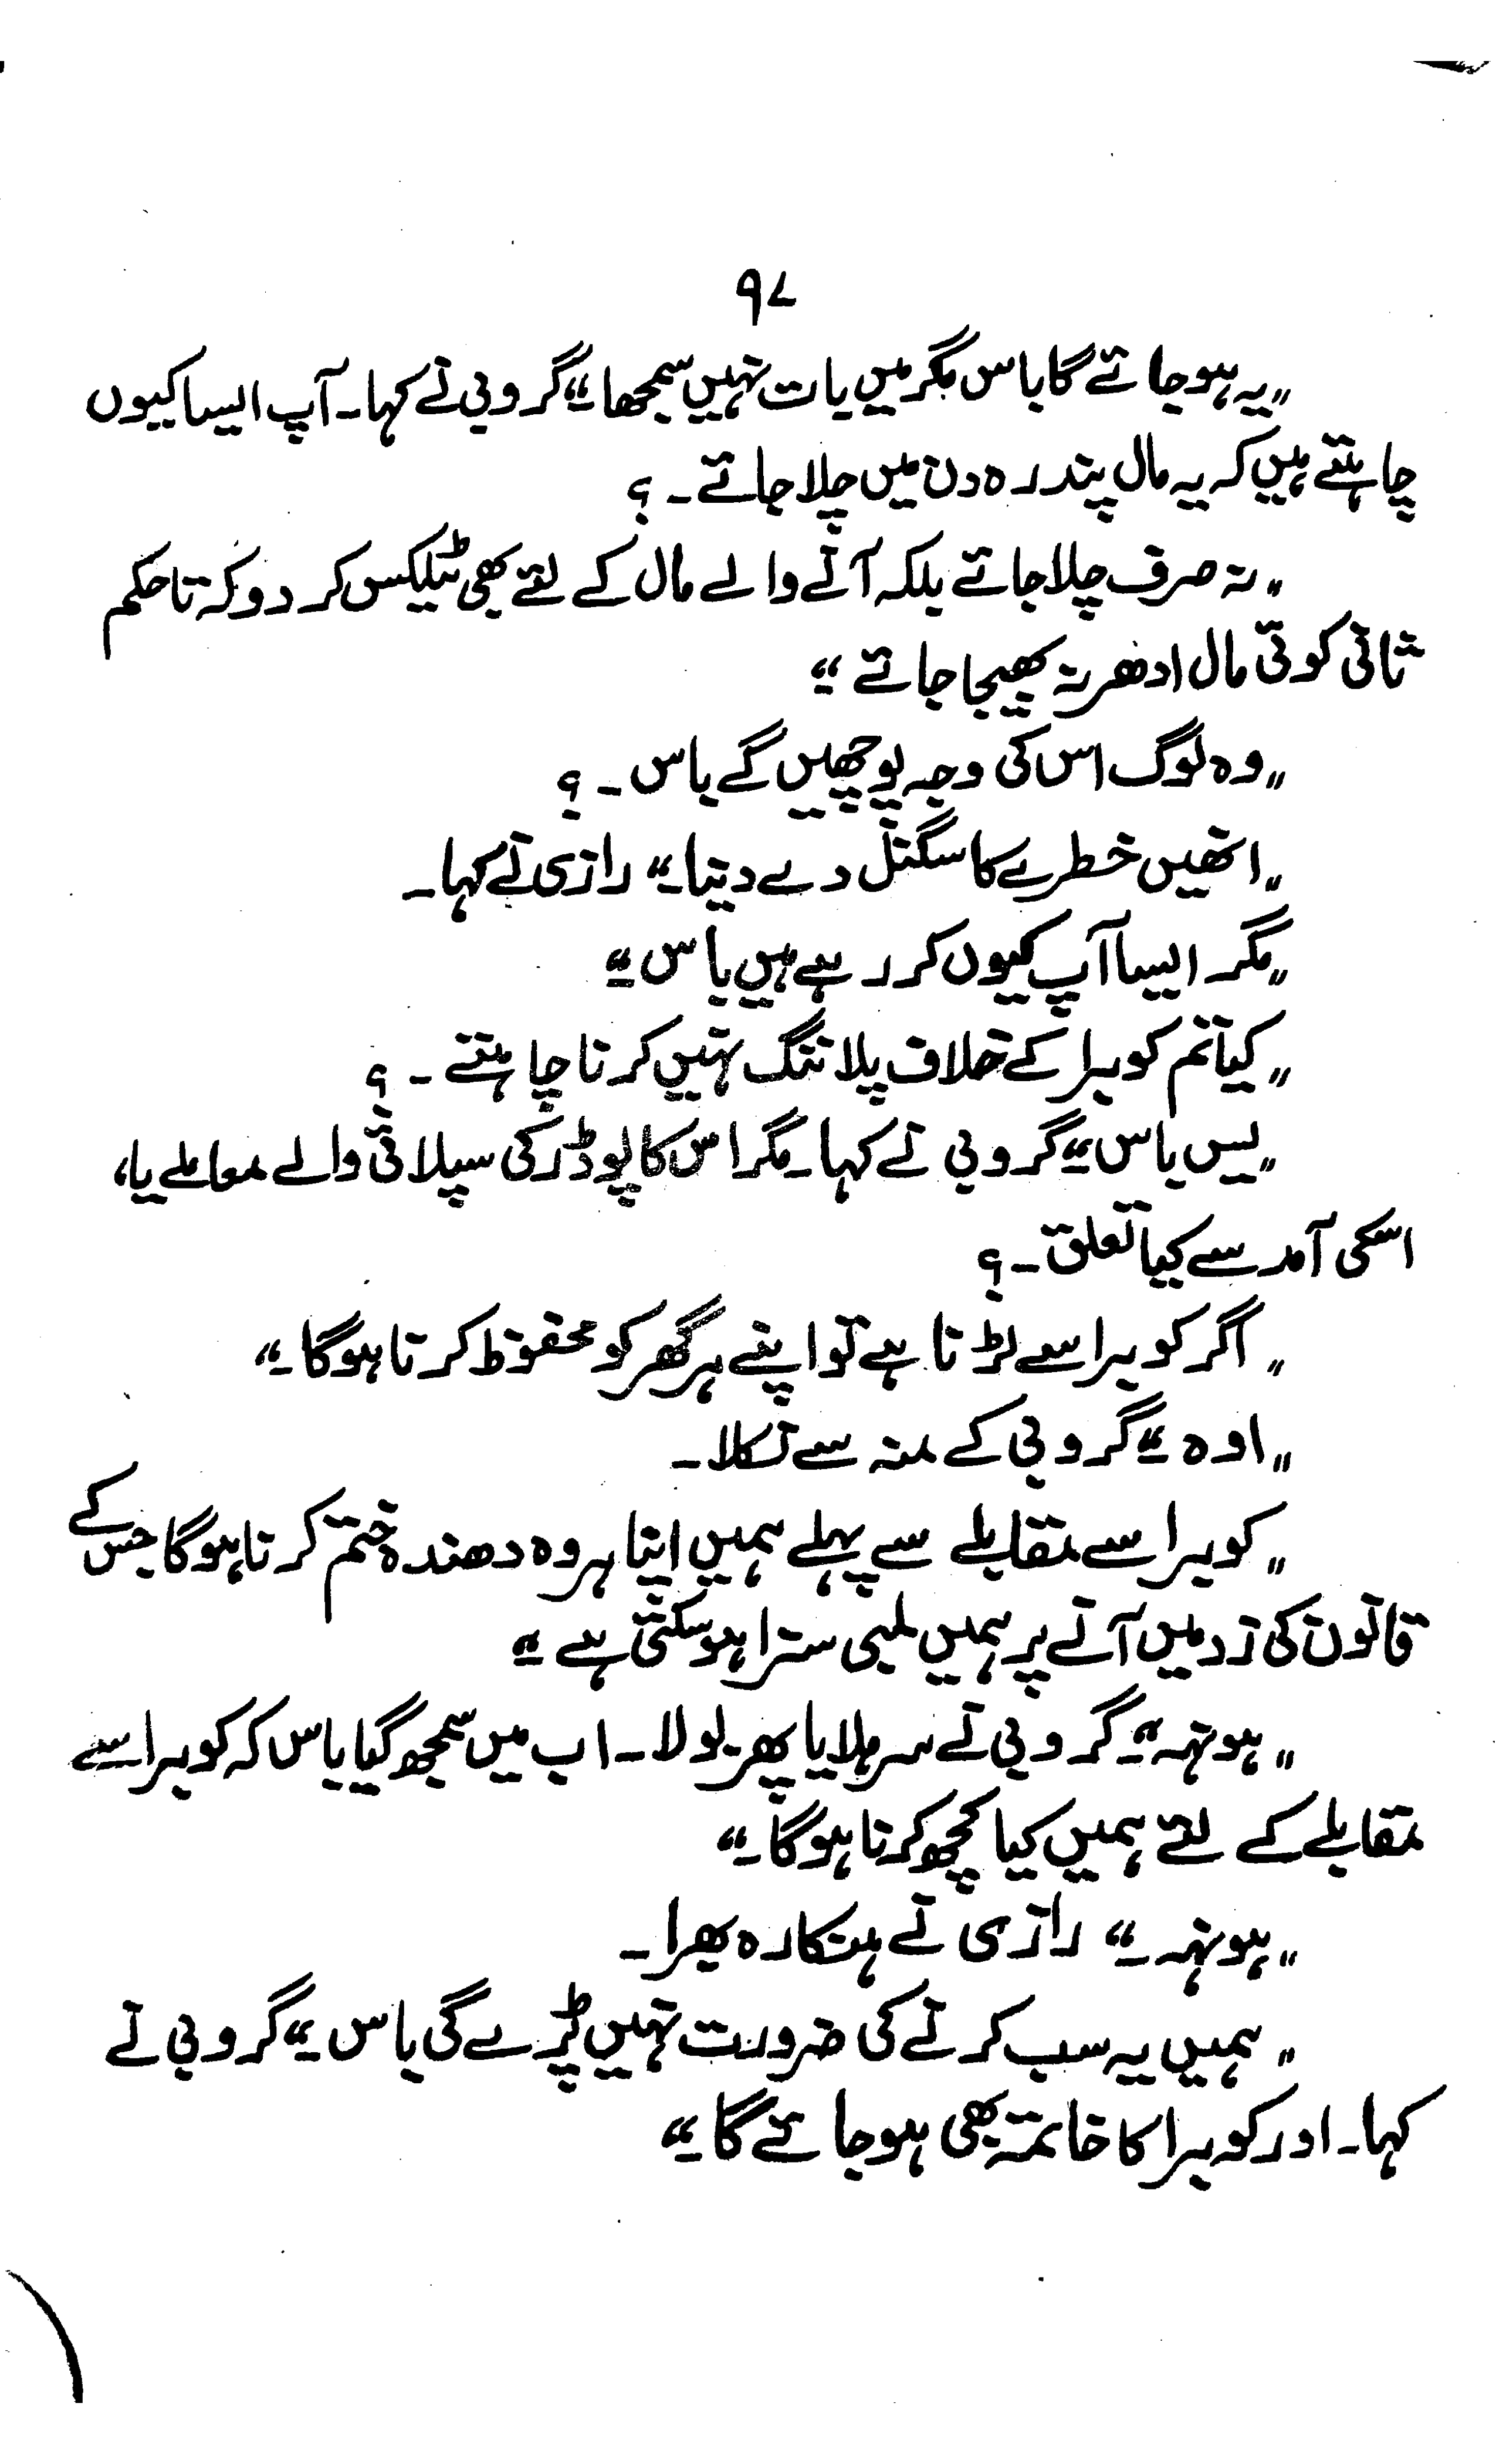 ۹۷
”یہ ہو جائے گا باس مگر میں بات نہیں سمجھا۔“ گروبی نے کہا۔ آپ ایسا کیوں
چاہتے ہیں کہ یہ مال پندرہ دن میں چلا جائے۔؟
”نہ صرف چلا جائے بلکہ آنے والے مال کے لئے بھی ٹیلیکس کر دو کہ تا حکم
ثانی کوئی مال ادھر نہ بھیجا جائے“
”وہ لوگ اس کی وجہ پوچھیں گے باس۔؟
”انھیں خطرے کا سگنل دے دینا۔“ رازی نے کہا۔
”مگر ایسا آپ کیوں کر رہے ہیں باس“
”کیا تم کوبرا کے خلاف پلاننگ نہیں کرنا چاہتے۔؟
”یس باس“ گروبی نے کہا۔ مگر اس کا پوڈر کی سپلائی والے معاملے یا،
اسکی آمد سے کیا تعلق۔؟
”اگر کوبرا سے لڑنا ہے تو اپنے ہر گھر کو محفوظ کرنا ہوگا۔“
”اوہ“ گروبی کے منہ سے نکلا۔
”کوبرا سے مقابلے سے پہلے ہمیں اپنا ہر وہ دھندہ ختم کرنا ہوگا جس کے
قانون کی زد میں آنے پر ہمیں لمبی سزا ہو سکتی ہے“
”ہونہہ“۔ گروبی نے سر ہلایا پھر بولا۔ اب میں سمجھ گیا باس کہ کوبرا سے
مقابلے کے لئے ہمیں کیا کچھ کرنا ہوگا۔“
”ہونہہ۔“ رازی نے ہنکارہ بھرا۔
”ہمیں یہ سب کرنے کی ضرورت نہیں پڑے گی باس۔“ گروبی نے
کہا۔ اور کوبرا کا خاتمہ بھی ہو جائے گا۔“